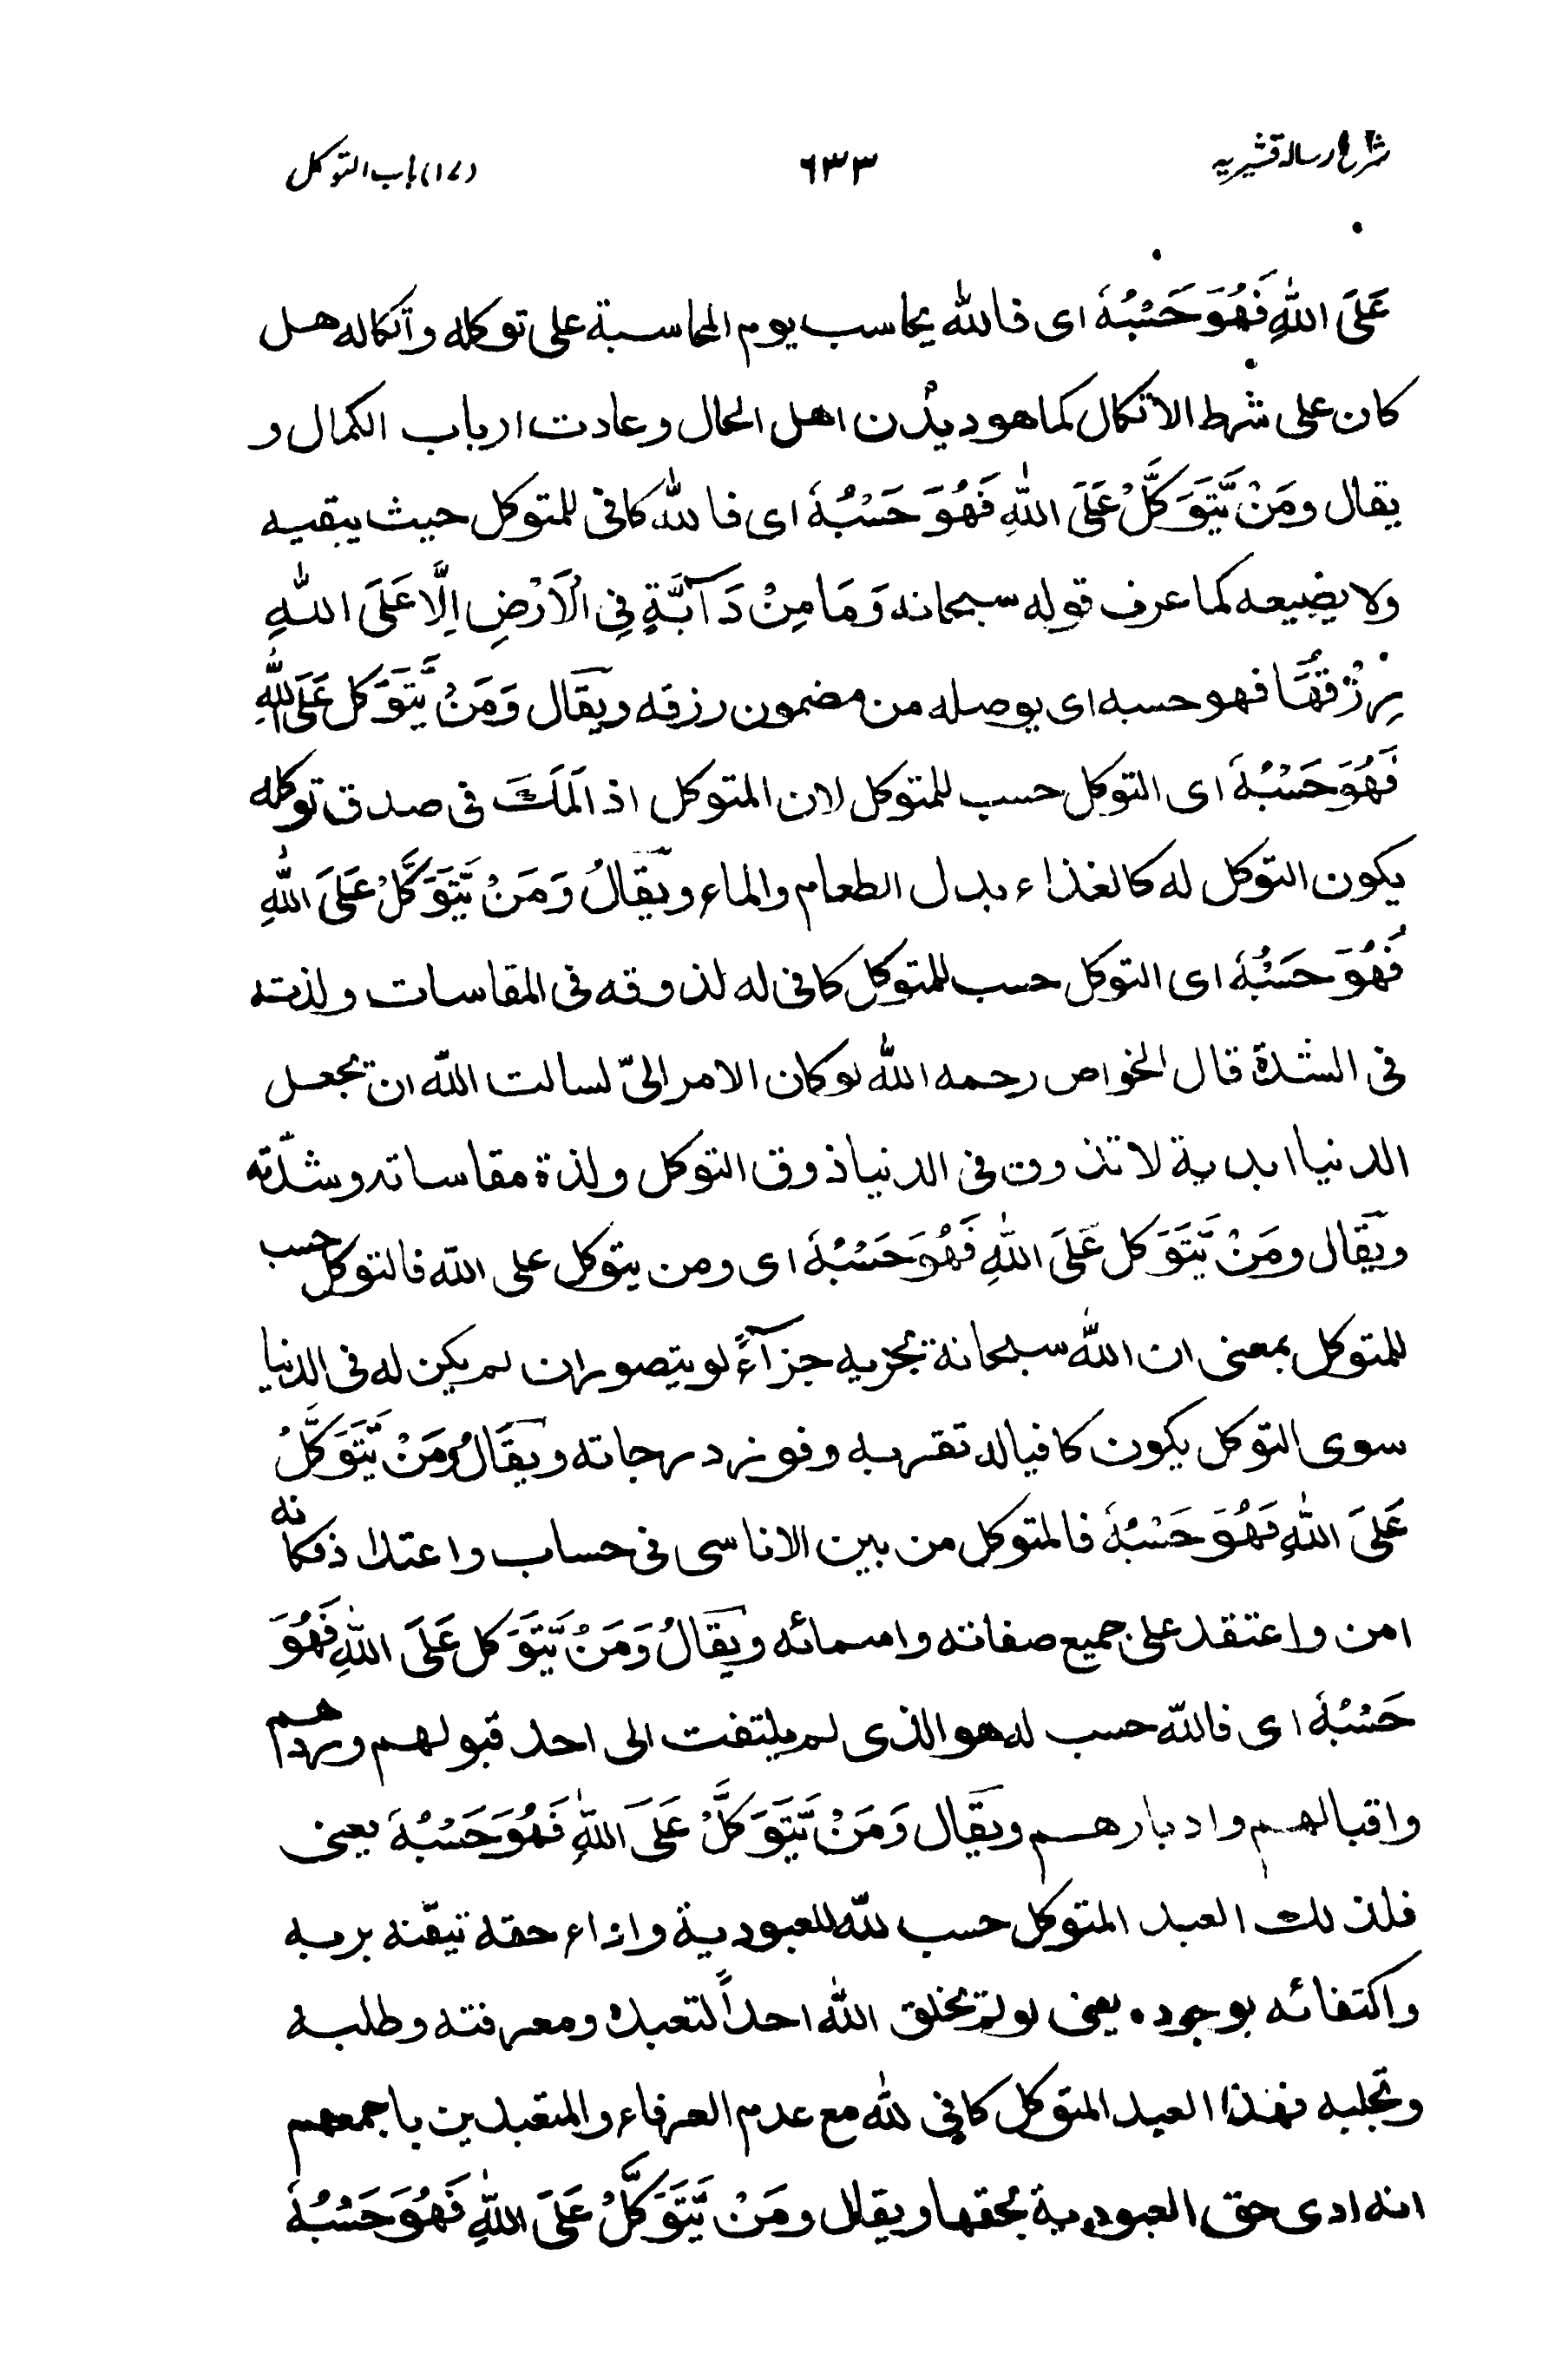 شرح رسالہ قشیریہ
٦٣٣
(١٧) باب التوکل
عَلَى اللّٰهِ فَهُوَ حَسْبُهٗ ای فاللّٰه یحاسب یوم المحاسبة علی توکله واتکاله هل
کان علی شرط الاتکال کما هو دیدن اهل الحال وعادت ارباب الکمال و
یقال ومَنْ يَّتَوَكَّلْ عَلَى اللّٰهِ فَهُوَ حَسْبُهٗ ای فاللّٰه کافی للمتوکل حیث یبقیه
ولا یضیعه کما عرف قوله سبحانه وَمَا مِنْ دَآبَّةٍ فِی الْاَرْضِ اِلَّا عَلَى اللّٰهِ
رِزْقُهَا فهو حسبه ای یوصله من مضمون رزقه ویقال وَمَنْ يَّتَوَكل عَلَى اللّٰهِ
فَهُوَ حَسْبُهٗ ای التوکل حسب للمتوکل لان المتوکل اذ الَمَكَ فی صدق توکله
یکون التوکل له کالغذاء بدل الطعام والماء ویقَالُ وَمَنْ يَّتَوَكَّلْ عَلَى اللّٰهِ
فَهُوَ حَسْبُهٗ ای التوکل حسب للمتوکل کافی له لذوقه فی المقاسات ولذته
فی الشدة قال الخواص رحمه اللّٰه لو کان الامر الیّ لسالت اللّٰه ان تجعل
الدنیا ابدیة لا تذوق فی الدنیا ذوق التوکل ولذة مقاساته وشدّته
ویقَال ومَنْ يَّتَوَكل عَلَى اللّٰهِ فَهُوَ حَسْبُهٗ ای ومن یتوکل علی اللّٰه فالتوکل حسب
للمتوکل بمعنی ان اللّٰه سبحانه یجزیه جزآءً لو یتصور ان لم یکن له فی الدنیا
سوی التوکل یکون کافیا له تقربه وفوز درجاته ویقَالُ ومَنْ يَّتَوَكَّلْ
عَلَى اللّٰهِ فَهُوَ حَسْبُهٗ فالمتوکل من بین الاناسی فی حساب واعتداذ فکانه
امن واعتقد علی جمیع صفاته واسمائه ویقَالُ وَمَنْ يَّتَوَكل عَلَى اللّٰهِ فَهُوَ
حَسْبُهٗ ای فاللّٰه حسب له هو الذی لم یلتفت الی احد قبولهم وردهم
واقبالهم وادبارهم ویقَال وَمَنْ يَّتَوَكَّلْ عَلَى اللّٰهِ فَهُوَ حَسْبُهٗ یعنی
فلذلك العبد المتوکل حسب للّٰه للعبودیة واداء حقه تیقّنه بربه
واکتفائه بوجوده یعنی لو لم یخلق اللّٰه احداً لتعبده ومعرفته وطلبه
وتجلیه فهذا العبد المتوکل کافی للّٰه مع عدم العرفاء والمتعبدین باجمعهم
انه ادی حق العبودیة بحقها ویقال ومَنْ يَّتَوَكَّلْ عَلَى اللّٰهِ فَهُوَ حَسْبُهٗ